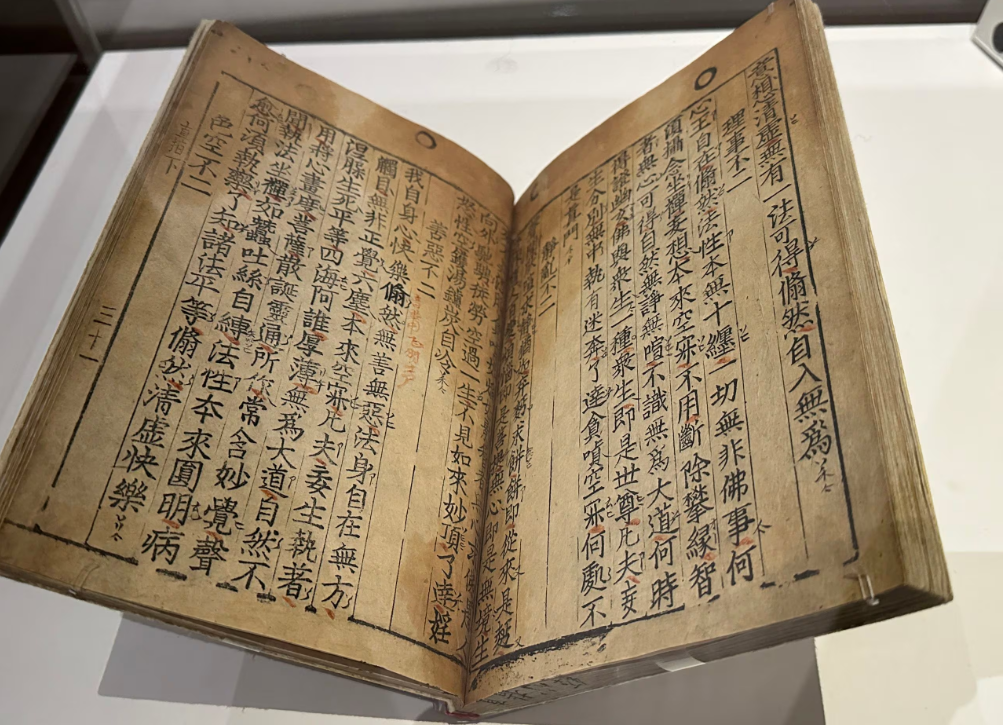 意想淸虛無有一法可得翛然自入無爲
理事不二
心王自在翛然法性本無十纏一切無非佛事何
須攝念坐禪妄想本來空寂不用斷除攀緣智
者無心可得自然無諍無喧不識無爲大道何時
得證幽玄佛與衆生一種衆生即是世尊凡夫妄
生分別無中執有迷奔了達貪嗔空寂何處不
是眞門
靜亂不二
求餅餅即從來是麵
無心即是無境生
向外尋覓縱勞空過一生不見如來妙㫖了達婬
慾性空鑊湯鑪炭自冷
善惡不二
我自身心快樂翛然無善無惡法身自在無方
觸目無非正覺六塵本來空寂凡夫妄生執著
涅槃生死平等四海阿誰厚薄無爲大道自然不
用將心畫度菩薩散誕靈通所作常含妙覺聲
聞執法坐禪如蠶吐絲自縛法性本來圓明病
愈何須執藥了知諸法平等翛然清虛快樂
色空不二
直指下 三十一